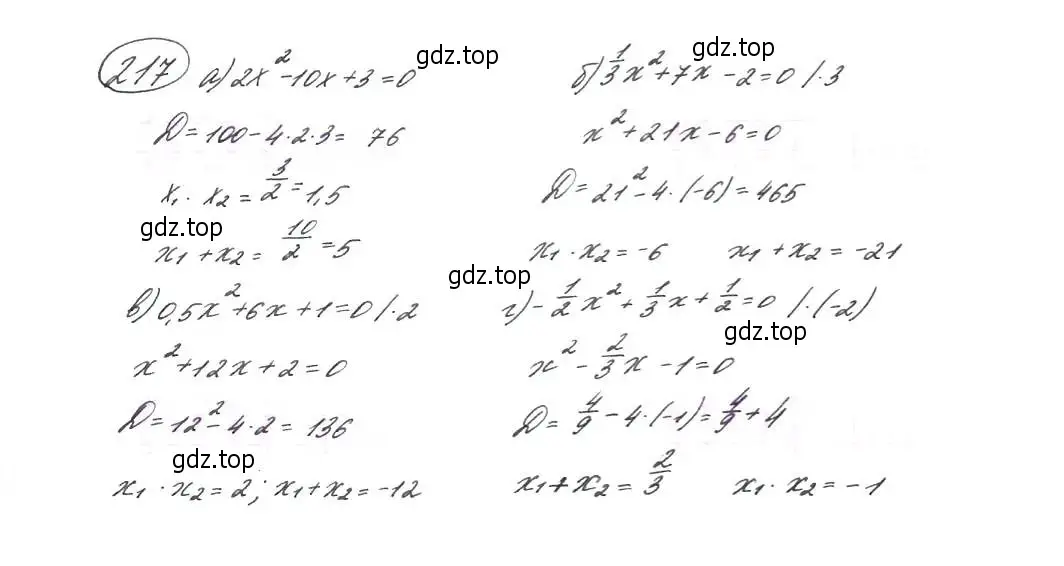 217 а) 2x² - 10x + 3 = 0
gdz.top
Д = 100 - 4·2·3 = 76
x₁ · x₂ = 3/2 = 1,5
gdz.top
x₁ + x₂ = 10/2 = 5
б) 1/3 x² + 7x - 2 = 0 /·3
gdz.top
x² + 21x - 6 = 0
Д = 21² - 4·(-6) = 465
x₁ · x₂ = -6 x₁ + x₂ = -21
gdz.top
в) 0,5x² + 6x + 1 = 0 /·2
x² + 12x + 2 = 0
Д = 12² - 4·2 = 136
gdz.top
x₁ · x₂ = 2; x₁ + x₂ = -12
г) - 1/2 x² + 1/3 x + 1/2 = 0 /·(-2)
gdz.top
x² - 2/3 x - 1 = 0
Д = 4/9 - 4·(-1) = 4/9 + 4
x₁ + x₂ = 2/3 x₁ · x₂ = -1